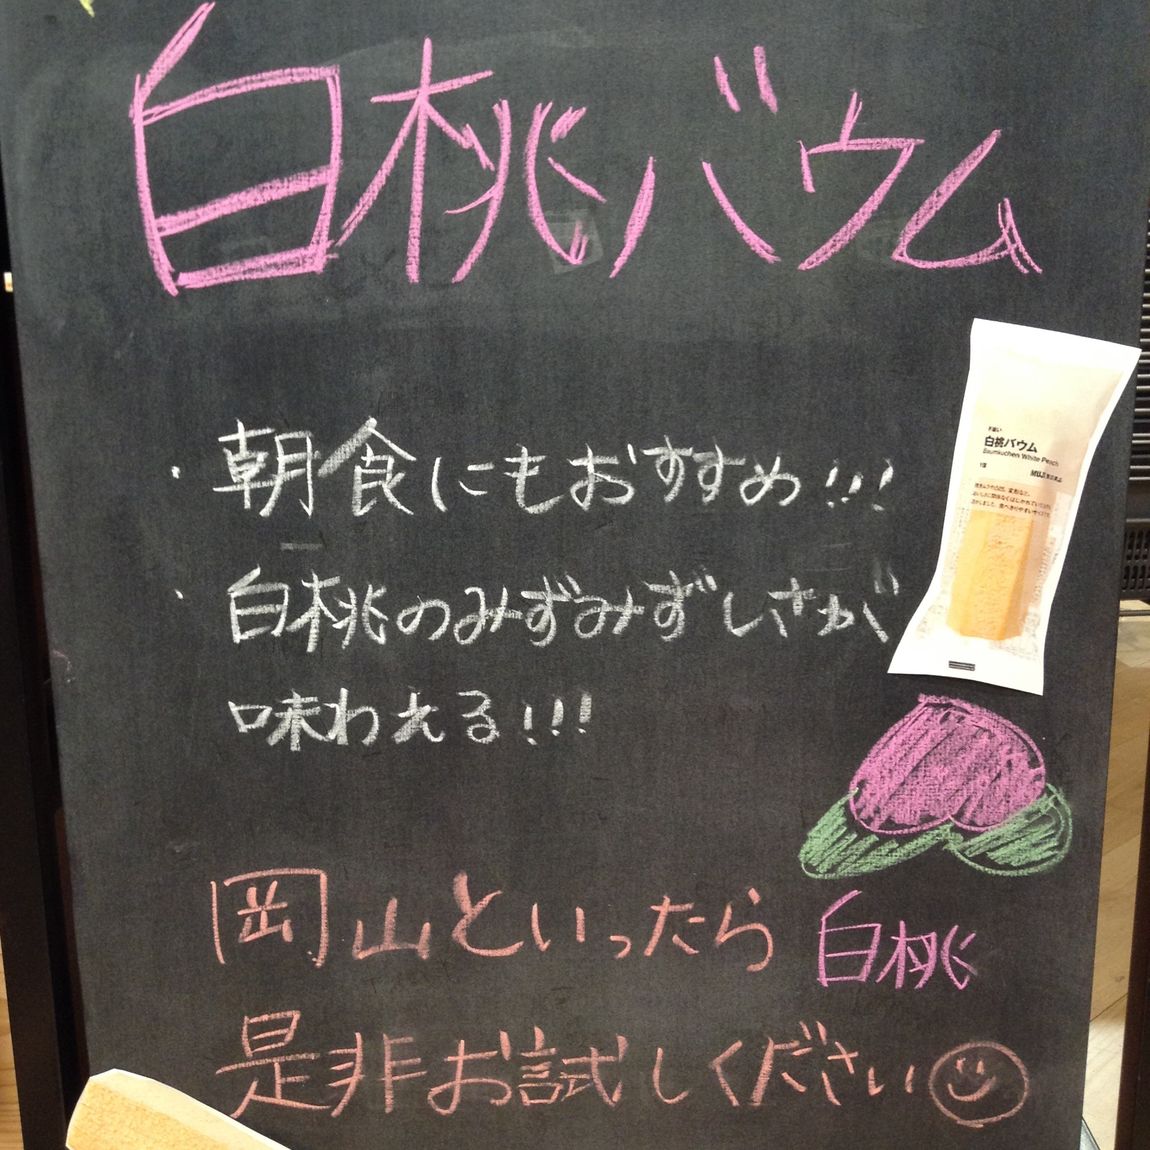 白桃バウム
・朝食にもおすすめ!!!
・白桃のみずみずしさが
味わえる!!!
不揃い
白桃バウム
Baumkuchen White Peach
1個
MUJI 無印良品
岡山といったら 白桃
是非お試しください